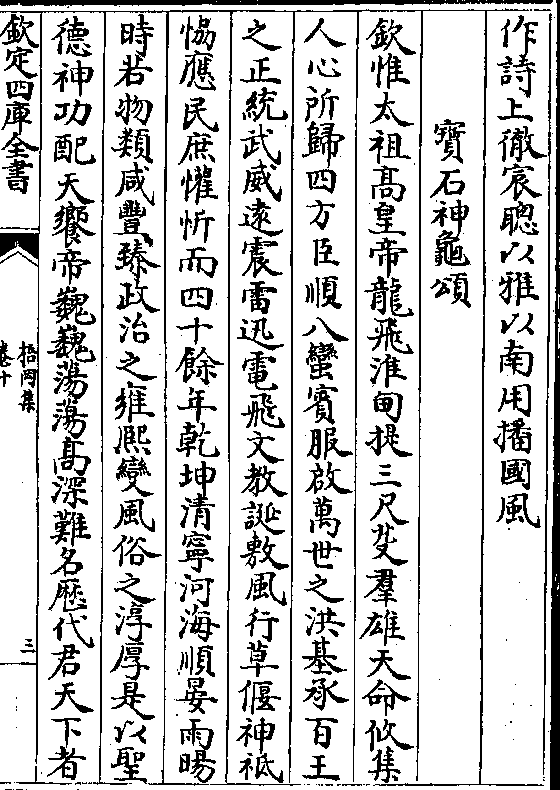 作詩上徹宸聰以雅以南用播國風
寶石神龜頌
欽惟太祖高皇帝龍飛淮甸提三尺芟羣雄天命攸集
人心所歸四方臣順八蠻賓服啟萬世之洪基承百王
之正統武威遠震雷迅電飛文教誕敷風行草偃神祗
恊應民庶懽忻而四十餘年乾坤清寧河海順晏雨暘
時若物類咸豐臻政治之雍熈變風俗之淳厚是以聖
德神功配天饗帝巍巍蕩蕩高深難名歴代君天下者
欽定四庫全書
梧岡集
卷十
三